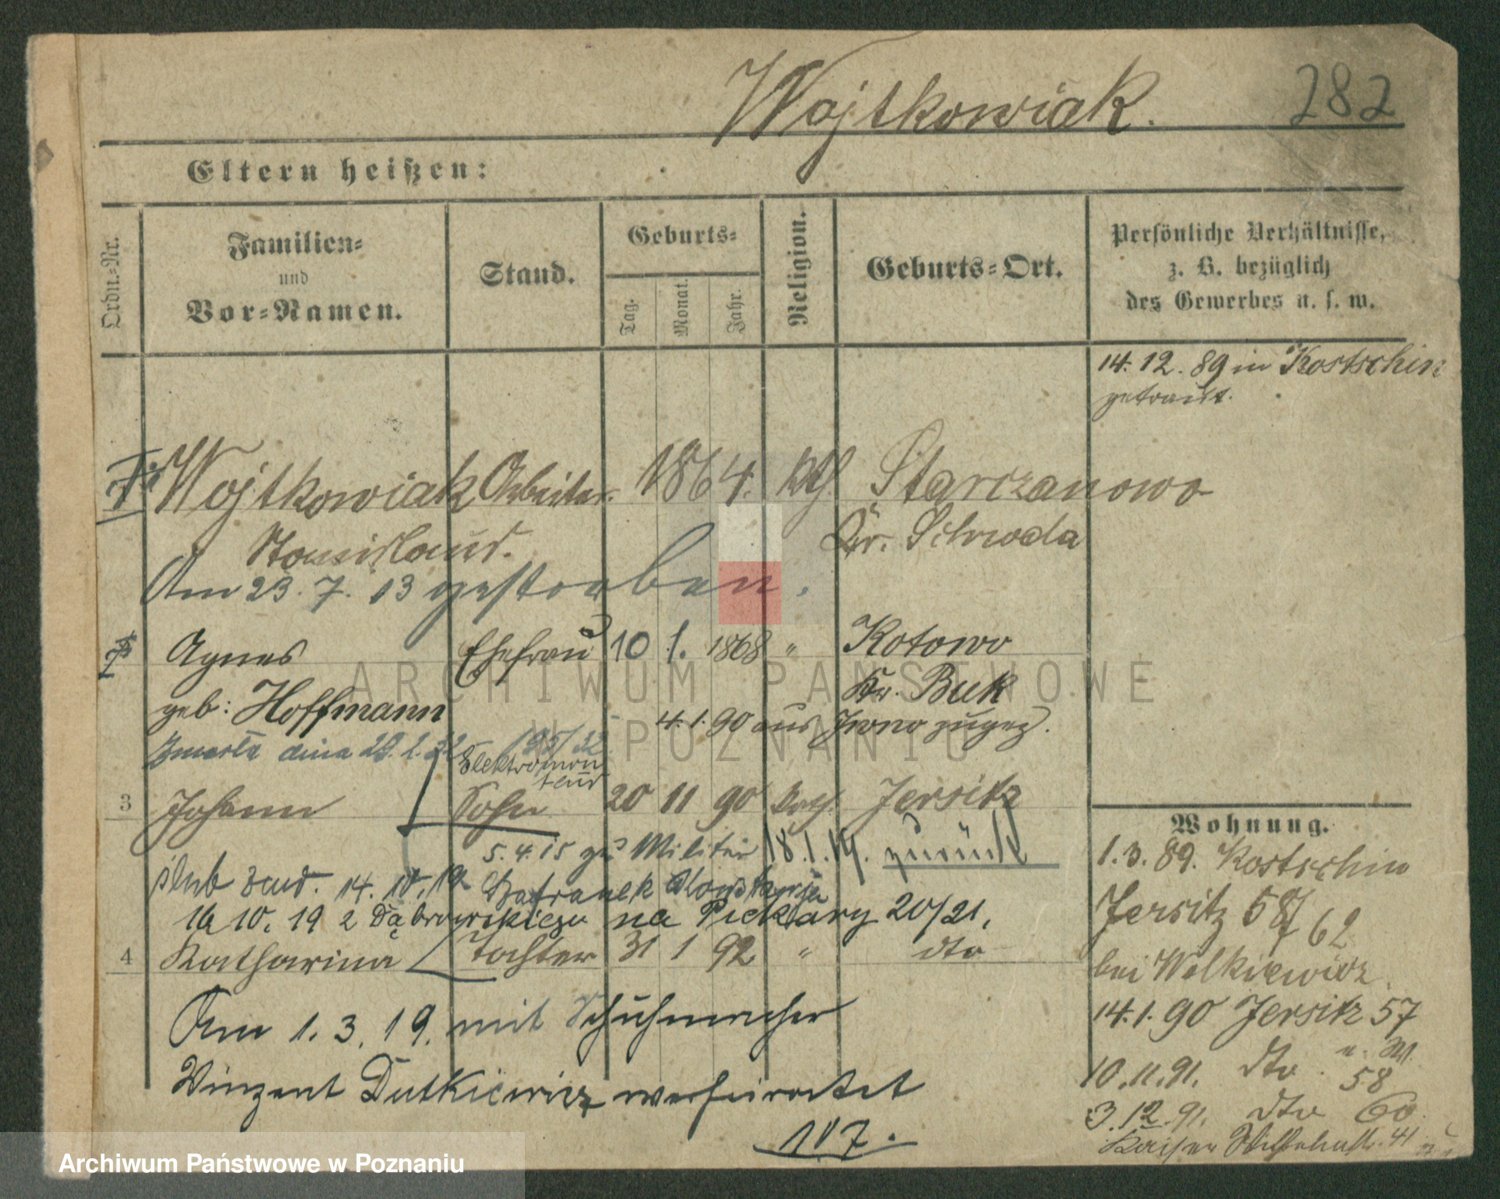 282
Wojtkowiak.
Eltern heißen:
Ordn.=Nr.
Familien=
und
Vor=Namen.
Stand.
Geburts=
Tag.
Monat.
Jahr.
Religion.
Geburts=Ort.
Persönliche Verhältnisse,
z. B. bezüglich
des Gewerbes u. s. w.
14. 12. 89 in Kostschin
getraut.
Wojtkowiak Arbeiter 1864. kth Starczanowo
Stanislaus. Kr. Schroda
Am 23. 7. 13 gestorben.
2 Agnes Ehefrau 10 1. 1868 " Kotowo
geb: Hoffmann Kr. Buk
4. 1. 90 aus zugez.
Zmarła dnia
Elektromon
teur
3 Johann Sohn 20 11 90 kath. Jersitz
5. 4. 15 zu Militär 18. 1. 19. zurück
ślub 14. 10. 19
16 10. 19 2 Dąbrowskiego na Piekary 20/21.
4 Katharina Tochter 31 1 92 " dto
Am 1. 3. 19. mit Schuhmacher
Vinzent Dutkiewicz verheiratet
Wohnung.
1. 3. 89. Kostschin
Jersitz 58/62
bei Walkiewicz
14. 1. 90 Jersitz 57
10. 11. 91. dto 58
3. 12. 91. dto 60
Kaiser Wilhelmstr. 41
ARCHIWUM PAŃSTWOWE
W POZNANIU
Archiwum Państwowe w Poznaniu